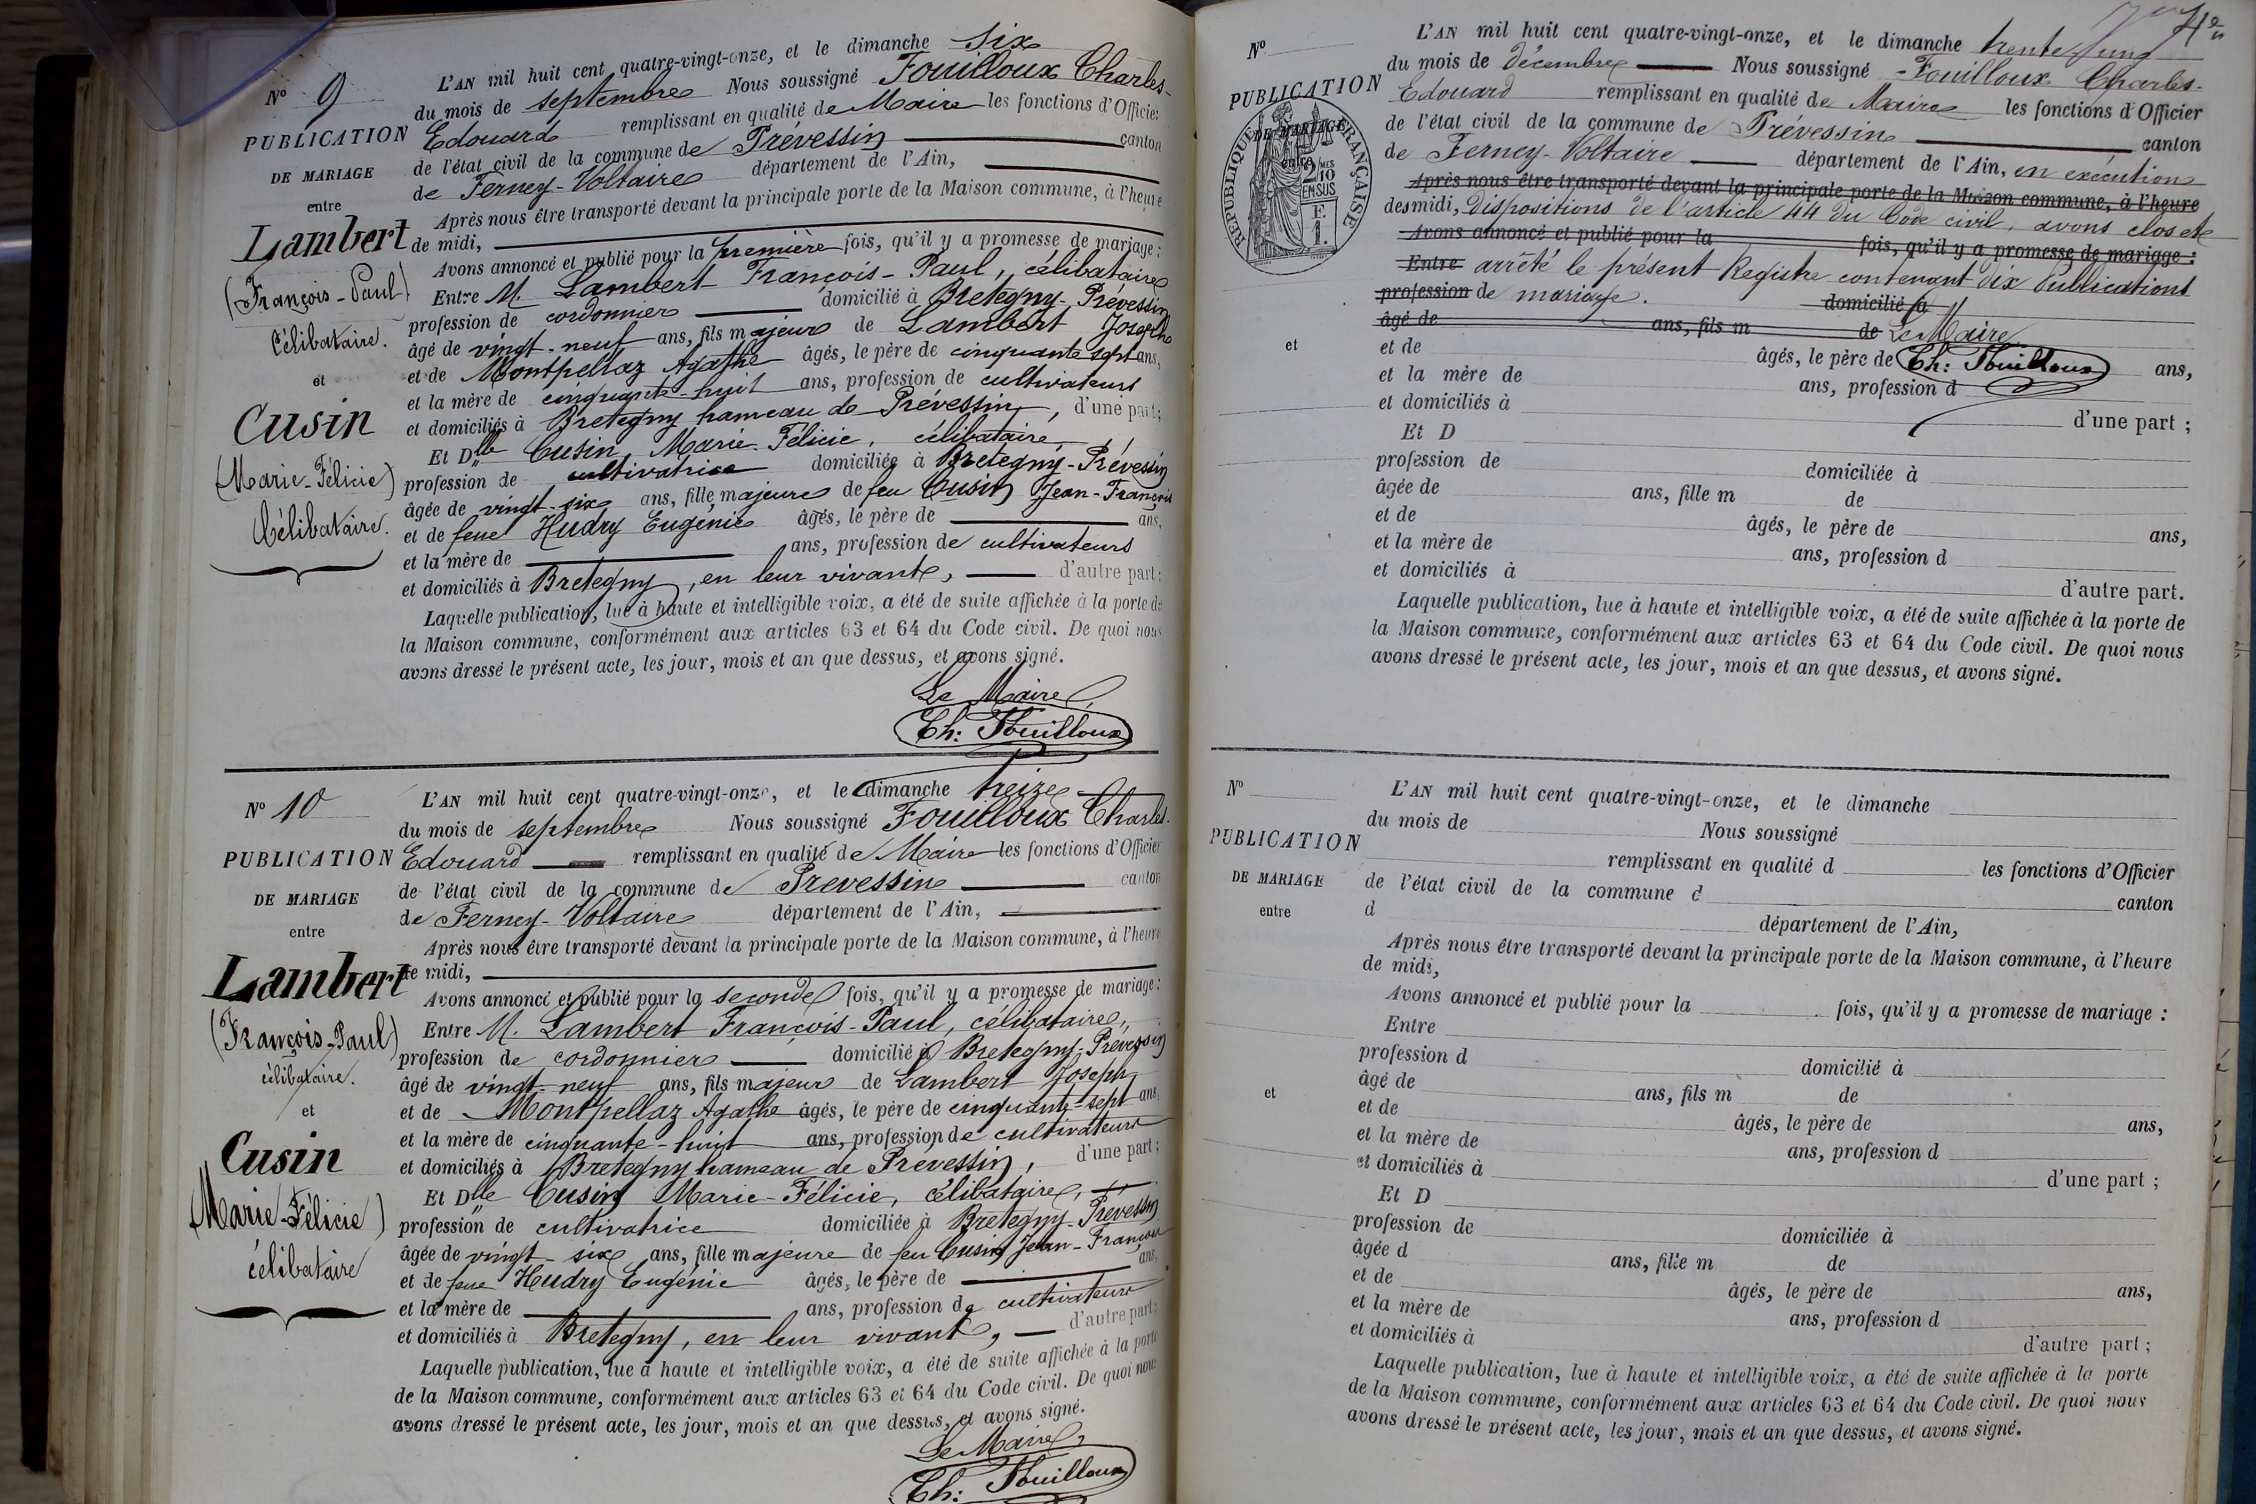 L'AN mil huit cent quatre-vingt-onze, et le dimanche six
Nº 9
du mois de septembre Nous soussigné Fouilloux Charles-
PUBLICATION
Edouard remplissant en qualité de Maire les fonctions d'Officier
de l'état civil de la commune de Prévessin canton
DE MARIAGE
de Ferney-Voltaire département de l'Ain,
entre
Après nous être transporté devant la principale porte de la Maison commune, à l'heure
Lambert
de midi,
Avons annoncé et publié pour la première fois, qu'il y a promesse de mariage :
(François-Paul)
Entre M. Lambert François-Paul, célibataire
profession de cordonnier domicilié à Bretegny-Prévessin
Célibataire.
âgé de vingt-neuf ans, fils majeur de Lambert Joseph
et
et de Montpellaz Agathe âgés, le père de cinquante sept ans,
et la mère de cinquante-huit ans, profession de cultivateurs
Cusin
et domiciliés à Bretegny hameau de Prévessin, d'une part;
Et Dlle Cusin Marie-Félicie, célibataire,
(Marie-Félicie)
profession de cultivatrice domiciliée à Bretegny-Prévessin
âgée de vingt-six ans, fille majeure de feu Cusin Jean-François
Célibataire.
et de feue Hudry Eugénie âgés, le père de ans,
et la mère de ans, profession de cultivateurs
et domiciliés à Bretegny, en leur vivant, d'autre part;
Laquelle publication, lue à haute et intelligible voix, a été de suite affichée à la porte de
la Maison commune, conformément aux articles 63 et 64 du Code civil. De quoi nous
avons dressé le présent acte, les jour, mois et an que dessus, et avons signé.
Le Maire,
Ch: Fouilloux
L'AN mil huit cent quatre-vingt-onze, et le dimanche treize
Nº 10
du mois de septembre Nous soussigné Fouilloux Charles-
PUBLICATION
Edouard remplissant en qualité de Maire les fonctions d'Officier
de l'état civil de la commune de Prevessin canton
DE MARIAGE
de Ferney-Voltaire département de l'Ain,
entre
Après nous être transporté devant la principale porte de la Maison commune, à l'heure
Lambert
de midi,
Avons annoncé et publié pour la seconde fois, qu'il y a promesse de mariage :
(François-Paul)
Entre M. Lambert François-Paul, célibataire,
profession de cordonnier domicilié à Bretegny-Prévessin
célibataire.
âgé de vingt-neuf ans, fils majeur de Lambert Joseph
et
et de Montpellaz Agathe âgés, le père de cinquante-sept ans,
et la mère de cinquante-huit ans, profession de cultivateurs
Cusin
et domiciliés à Bretegny hameau de Prévessin, d'une part;
Et Dlle Cusin Marie-Félicie, célibataire,
(Marie-Félicie)
profession de cultivatrice domiciliée à Bretegny-Prévessin
âgée de vingt-six ans, fille majeure de feu Cusin Jean-François
célibataire
et de feue Hudry Eugénie âgés, le père de ans,
et la mère de ans, profession de cultivateurs
et domiciliés à Bretegny, en leur vivant, d'autre part;
Laquelle publication, lue à haute et intelligible voix, a été de suite affichée à la porte
de la Maison commune, conformément aux articles 63 et 64 du Code civil. De quoi nous
avons dressé le présent acte, les jour, mois et an que dessus, et avons signé.
Le Maire,
Ch: Fouilloux
L'AN mil huit cent quatre-vingt-onze, et le dimanche trente un
Nº
du mois de décembre Nous soussigné Fouilloux Charles-
PUBLICATION
Edouard remplissant en qualité de Maire les fonctions d'Officier
DE MARIAGE
RÉPUBLIQUE FRANÇAISE
2 MES 10 EN SUS
F. 1.
entre
de l'état civil de la commune de Prévessin canton
de Ferney-Voltaire département de l'Ain, en exécution
Après nous être transporté devant la principale porte de la Maison commune, à l'heure
des midi, dispositions de l'article 44 du Code civil, avons clos et
Avons annoncé et publié pour la fois, qu'il y a promesse de mariage :
Entre arrêté le présent Registre contenant dix publications
profession de mariage. domicilié à
âgé de ans, fils m de Le Maire
et
et de âgés, le père de Ch: Fouilloux ans,
et la mère de ans, profession d
et domiciliés à d'une part ;
Et D
profession de domiciliée à
âgée de ans, fille m de
et de âgés, le père de ans,
et la mère de ans, profession d
et domiciliés à d'autre part.
Laquelle publication, lue à haute et intelligible voix, a été de suite affichée à la porte de
la Maison commune, conformément aux articles 63 et 64 du Code civil. De quoi nous
avons dressé le présent acte, les jour, mois et an que dessus, et avons signé.
Nº
L'AN mil huit cent quatre-vingt-onze, et le dimanche
du mois de Nous soussigné
PUBLICATION
remplissant en qualité d les fonctions d'Officier
DE MARIAGE
de l'état civil de la commune d canton
entre
d département de l'Ain,
Après nous être transporté devant la principale porte de la Maison commune, à l'heure
de midi,
Avons annoncé et publié pour la fois, qu'il y a promesse de mariage :
Entre
profession d domicilié à
âgé de ans, fils m de
et
et de âgés, le père de ans,
et la mère de ans, profession d
et domiciliés à d'une part ;
Et D
profession de domiciliée à
âgée d ans, fille m de
et de âgés, le père de ans,
et la mère de ans, profession d
et domiciliés à d'autre part ;
Laquelle publication, lue à haute et intelligible voix, a été de suite affichée à la porte
de la Maison commune, conformément aux articles 63 et 64 du Code civil. De quoi nous
avons dressé le présent acte, les jour, mois et an que dessus, et avons signé.